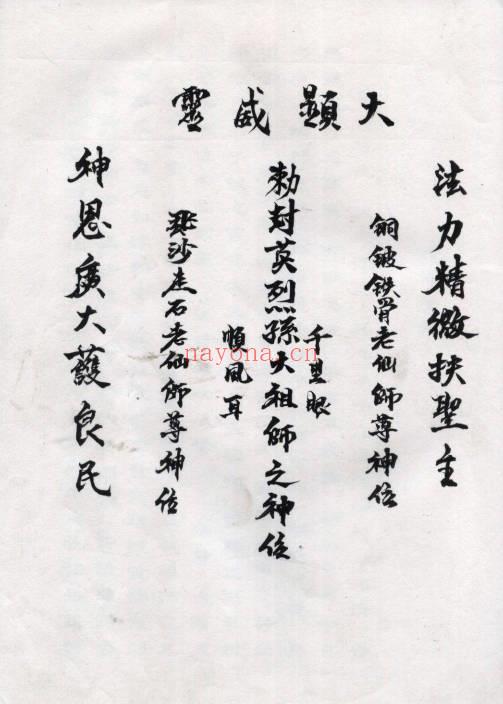 大顯威靈
法力精微扶聖主
銅鈹鉄骨老仙師尊神位
千里眼
勅封英烈孫大祖師之神位
順風耳
飛沙走石老仙師尊神位
神恩廣大護良民
nayona.cn